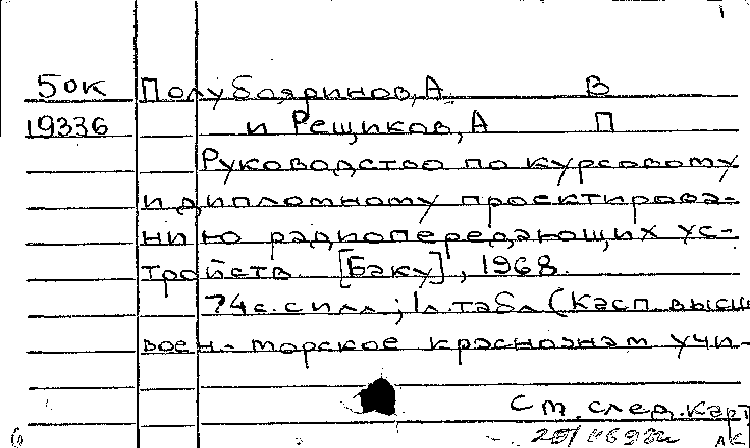 50к Полубояринов, А. В
19336 и Рещиков, А П
Руководство по курсовому
и дипломному проектирова-
нию радиопередающих ус-
тройств [Баку], 1968.
74 с. с илл; 1 л. табл (Касп. высш
воен-морское краснознам учи-
См. след. карт